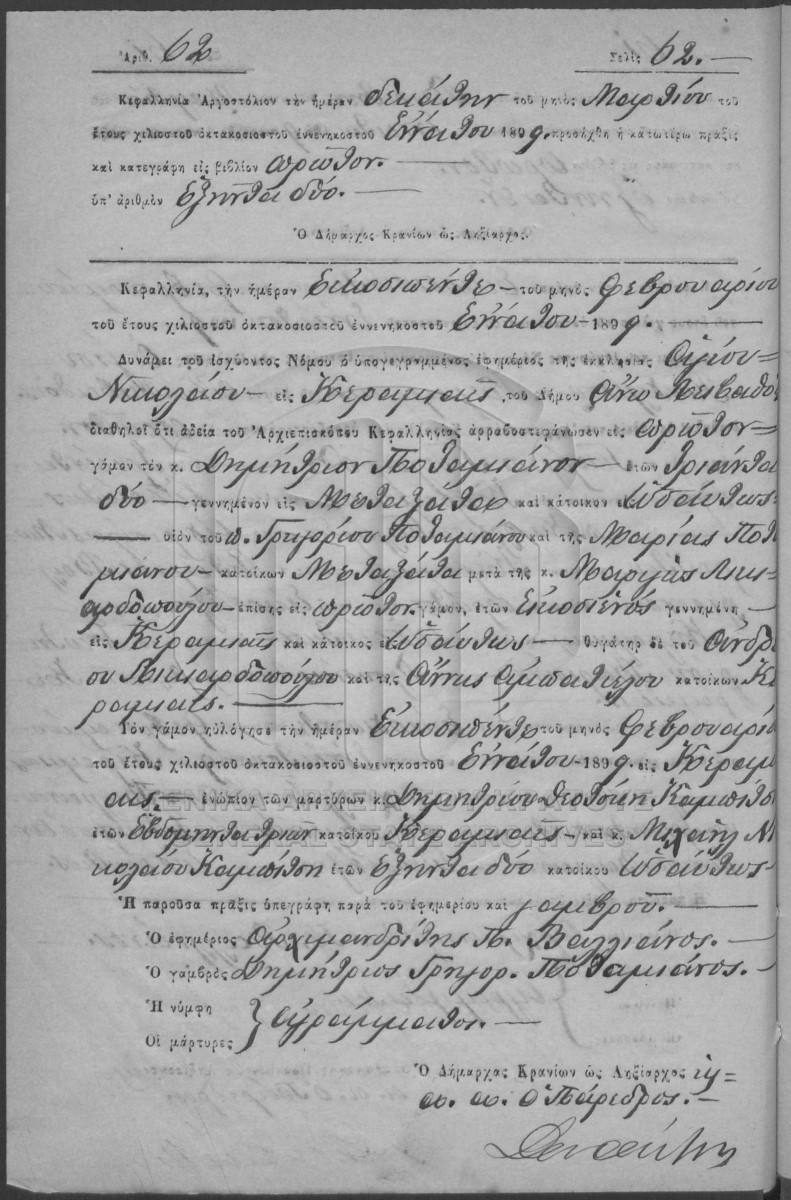 Ἀριθ. 62 Σελὶς 62.
Κεφαλληνία Ἀργοστόλιον τὴν ἡμέραν δεκάτην τοῦ μηνὸς Μαρτίου τοῦ
ἔτους χιλιοστοῦ ὀκτακοσιοστοῦ ἐννενηκοστοῦ Ἐννάτου 1899. προσήχθη ἡ κατωτέρω πρᾶξις
καὶ κατεγράφη εἰς βιβλίον πρῶτον.
ὑπ' ἀριθμὸν Ἑξῆντα δύο.
Ὁ Δήμαρχος Κρανίων ὡς Ληξίαρχος.
Κεφαλληνία, τὴν ἡμέραν Εἰκοσιπέντε τοῦ μηνὸς Φεβρουαρίου
τοῦ ἔτους χιλιοστοῦ ὀκτακοσιοστοῦ ἐννενηκοστοῦ Ἐννάτου 1899.
Δυνάμει τοῦ ἰσχύοντος Νόμου ὁ ὑπογεγραμμένος ἐφημέριος τῆς ἐκκλησίας Ἁγίου
Νικολάου εἰς Κεραμιαῖς τοῦ Δήμου Ἄνω Λειβαθο
διαθηλοῖ ὅτι ἀδεία τοῦ Ἀρχιεπισκόπου Κεφαλληνίας ἀρραβοστεφάνωσεν εἰς πρῶτον
γάμον τὸν κ. Δημήτριον Ποταμιάνον ἐτῶν Τριάντα
δύο γεννημένον εἰς Μεταξάτα καὶ κάτοικον ε Ὡσαύτως
υἱὸν τοῦ π. Γρηγορίου Ποταμιάνου καὶ τῆς Μαρίας Ποτ
μιάνου κατοίκων Μεταξάτα μετὰ τῆς κ. Μαριγὰς Λικι
αρδοπούλου ἐπίσης εἰς πρῶτον γάμον, ἐτῶν Εἰκοσιενὸς γεννημένη
εἰς Κεραμιαῖς καὶ κάτοικος ε Ὡσαύτως θυγάτηρ δὲ τοῦ Ἀνδρέ
ου Λικιαρδοπούλου καὶ τῆς Ἄννας Ἀμπατιέλου κατοίκων Κε
ραμιαῖς.
Τὸν γάμον ηὐλόγησε τὴν ἡμέραν Εἰκοσιπέντε τοῦ μηνὸς Φεβρουαρίο
τοῦ ἔτους χιλιοστοῦ ὀκτακοσιοστοῦ ἐννενηκοστοῦ Ἐννάτου 1899. εἰς Κεραμι
αῖς. ἐνώπιον τῶν μαρτύρων κ. Δημητρίου Θεοτόκη Καμπίτσ
ἐτῶν Ἑβδομήντα τριῶν κατοίκου Κεραμιαῖς καὶ κ. Μιχαὴλ Νι
κολάου Καμπίτση ἐτῶν Ἑξῆντα δύο κατοίκου Ὡσαύτως
Ἡ παροῦσα πρᾶξις ὑπεγράφη παρὰ τοῦ ἐφημερίου καὶ γαμβροῦ.
Ὁ ἐφημέριος Ἀρχιμανδρίτης Π. Βαλλιάνος.
Ὁ γαμβρὸς Δημήτριος Γρηγορ. Ποταμιάνος.
Ἡ νύμφη
Οἱ μάρτυρες } ἀγράμματοι.
Ὁ Δήμαρχος Κρανίων ὡς Ληξίαρχος
α. α. ὁ Πάρεδρος.
ΓΕΝΙΚΑ ΑΡΧΕΙΑ ΤΟΥ ΚΡΑΤΟΥΣ
GENERAL STATE ARCHIVES